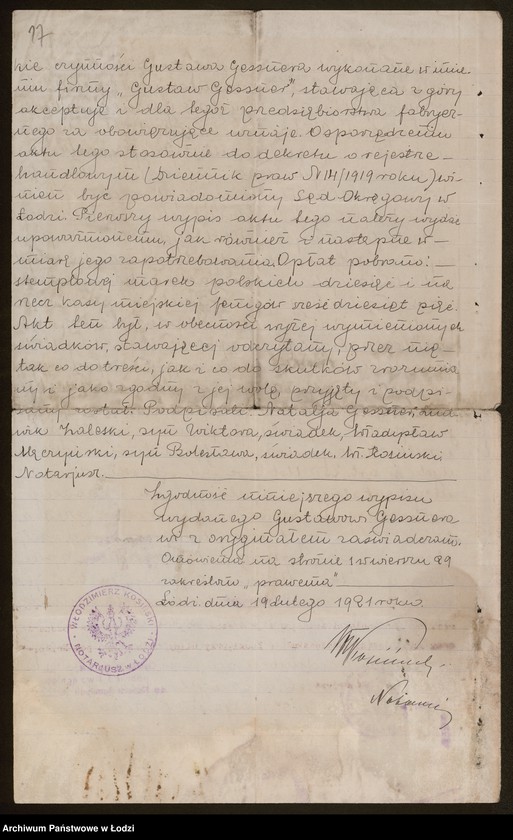 17
kie czynności Gustawa Gessnera wykonane w imie-
niu firmy „Gustaw Gessner", stawająca z góry
akceptuje i dla tegoż przedsiębiorstwa fabrycz-
nego za obowiązujące uznaje. O sporządzeniu
aktu tego stosownie do dekretu o rejestrze
handlowym (Dziennik praw N 14/1919 roku) wi-
nien być powiadomiony Sąd Okręgowy w
Łodzi. Pierwszy wypis aktu tego należy wydać
upoważnionemu, jak również i następne w
miarę jego zapotrzebowania. Opłat pobrano:
stemplowej marek polskich dziesięć i na
rzecz kasy miejskiej fenigów sześćdziesiąt pięć.
Akt ten był, w obecności wyżej wymienionych
świadków, stawającej odczytany, przez nię
tak co do treści, jak i co do skutków zrozumia-
ny i jako zgodny z jej wolą, przyjęty i podpi-
sany został. Podpisali: Natalja Gessner, Lud-
wik Zaleski, syn Wiktora, świadek, Władysław
syn Bolesława, świadek, Wł. Kosiński
Notarjusz.
Zgodność niniejszego wypisu
wydanego Gustawowi Gessnerowi
z oryginałem zaświadczam.
na stronie 1 wierszu 29
zakreślono „prawemia"
Łódź, dnia 19 lutego 1921 roku.
WŁODZIMIERZ KOSIŃSKI
NOTARJUSZ w ŁODZI
Archiwum Państwowe w Łodzi